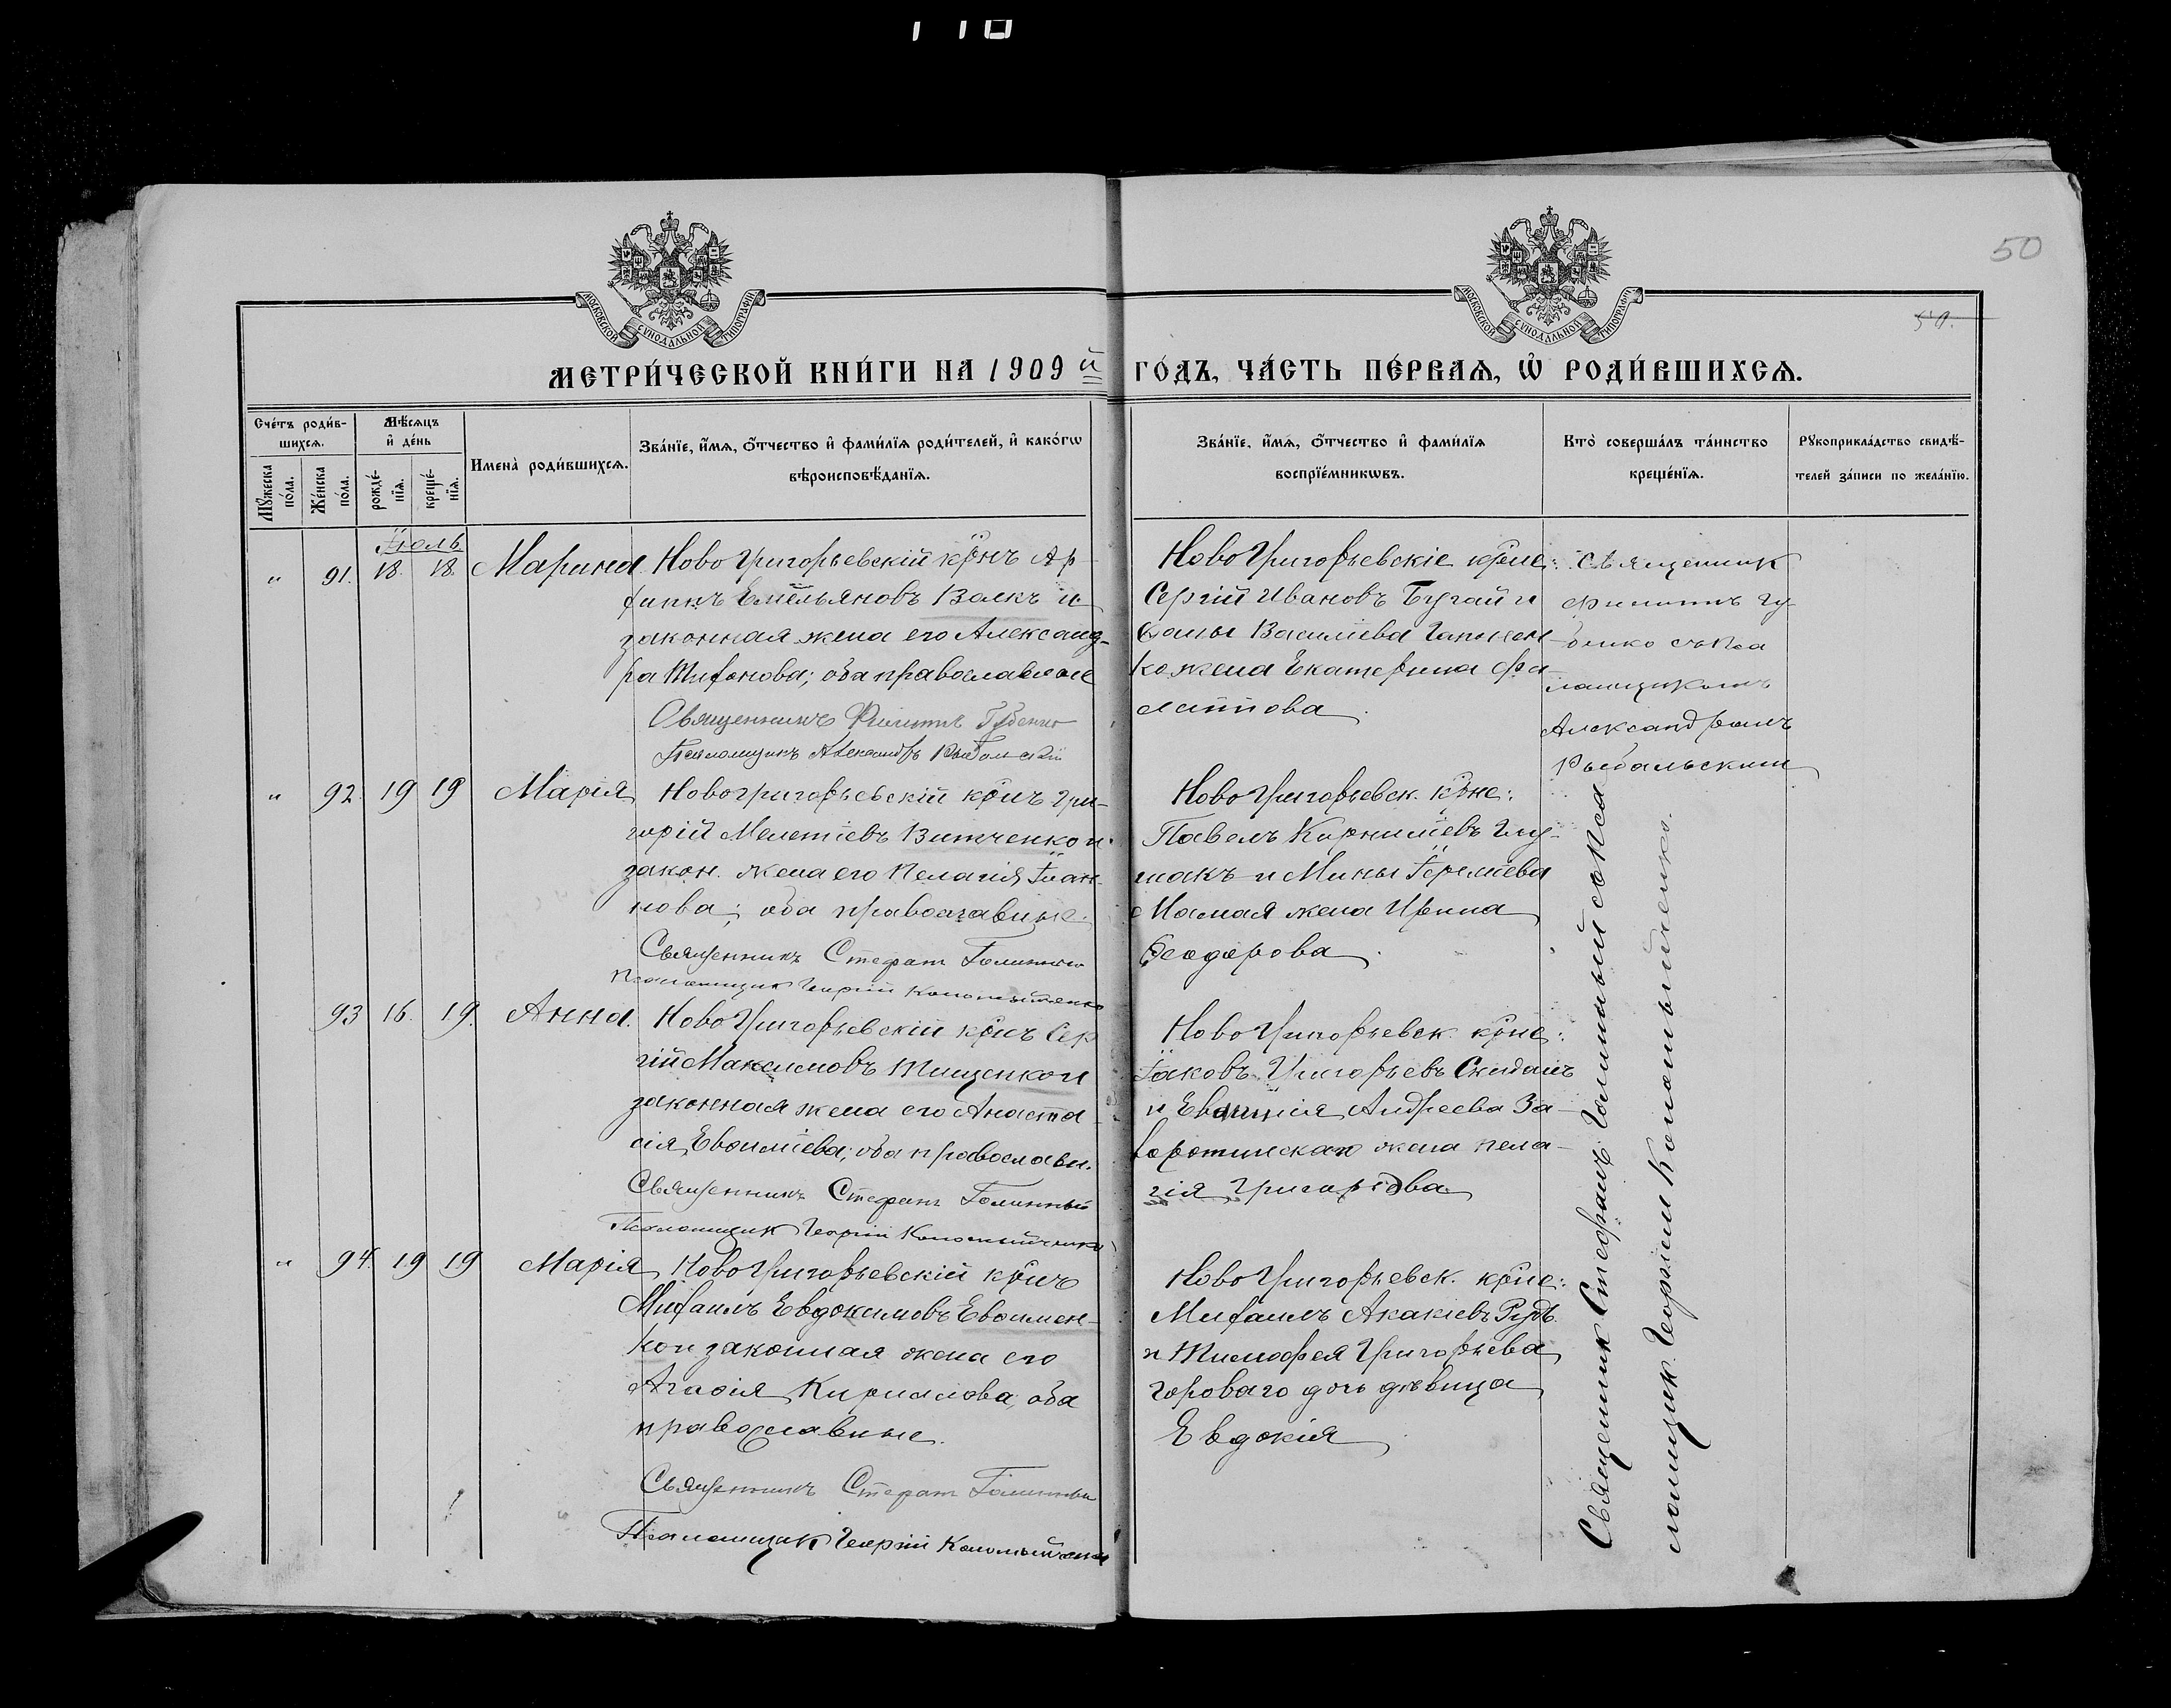 50
50.
МОСКОВСКОЙ СУНОДАЛЬНОЙ ТИПОГРАФІИ
МОСКОВСКОЙ СУНОДАЛЬНОЙ ТИПОГРАФІИ
МЕТРИ́ЧЕСКОЙ КНИ́ГИ НА 1909 й ГО́ДЪ, ЧА́СТЬ ПЕ́РВАѦ, Ѡ҆ РОДИ́ВШИХСѦ.
Сче́тъ роди́в-
шихсѧ.
Мѣ́сѧцъ
и҆ де́нь
Мꙋ́жеска по́ла.
Же́нска по́ла.
рожде́-нїѧ.
креще́-нїѧ.
Имена̀ роди́вшихсѧ.
Зва́нїе, и҆́мѧ, ѻ҆́тчество и҆ фами́лїѧ роди́телей, и҆ како́гѡ
вѣроисповѣ́данїѧ.
Зва́нїе, и҆́мѧ, ѻ҆́тчество и҆ фами́лїѧ
воспрїе́мникѡвъ.
Кто̀ соверша́лъ та́инство
креще́нїѧ.
Рꙋкоприкла́дство свидѣ́-
телей за́писи по жела́нїю.
Іюль
" 91. 18. 18. Марина Ново Григорьевскій крнъ Ар
хипъ Емельяновъ Волкъ и
законная жена его Александ-
ра Тифонова; оба православные
Священникъ Филиппъ Губенко
Псаломщикъ Александръ Рыбальскій
Ново Григорьевскіе крне:
Сергій Ивановъ Бугай и
Ѳомы Василіева Гапонен
ко жена Екатерина Фи
липпова.
Священник
Филиппъ Гу-
бенко съ Пса
ломщикомъ
Александромъ
Рыбальским
" 92. 19 19 Марія Новогригорьевскій крнъ Гри-
горій Мелетіевъ Витченко и
закон. жена его Пелагія Іоан-
нова; оба православные.
Священникъ Стефан Голинный
Псаломщик Георгій Коломыйченко
Ново Григорьевск. крне:
Павелъ Корниліевъ Глу-
шакъ и Мины Іереміева
Мамая жена Ирина
Ѳеодорова.
93 16. 19. Анна. Ново Григорьевскій крнъ Сер
гій Максимовъ Тищенко и
законная жена его Анаста
сія Евѳиміева; оба православн.
Священникъ Стефанъ Голинный
Псаломщик Георгій Коломыйченко
Ново Григорьевск. крне:
Іаковъ Григорьевъ Скиданъ
и Евѳимія Андреева За-
воротинскаго жена Пела-
гія Григорьева
" 94. 19 19 Марія Ново Григорьевскій крнъ
Михаилъ Евдокимовъ Евѳимен-
ко и законная жена его
Агаѳія Кириллова, оба
православные.
Священникъ Стефан Голинный
Псаломщик Георгій Коломыйченко
Ново Григорьевск. крне:
Михаилъ Акакіевъ Рудь
и Тимофея Григорьева
Гороваго дочь дѣвица
Евдокія
Священник Стефанъ Голинный съ Пса
ломщик. Георгіем Коломыйченко.